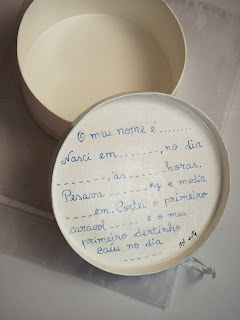 O meu nome é ........
Nasci em ......., no dia
......., às ....... horas.
Pesava ....... kg e media
.....cm. Cortei o primeiro
caracol ..... e o meu
primeiro dentinho
caiu no dia
......